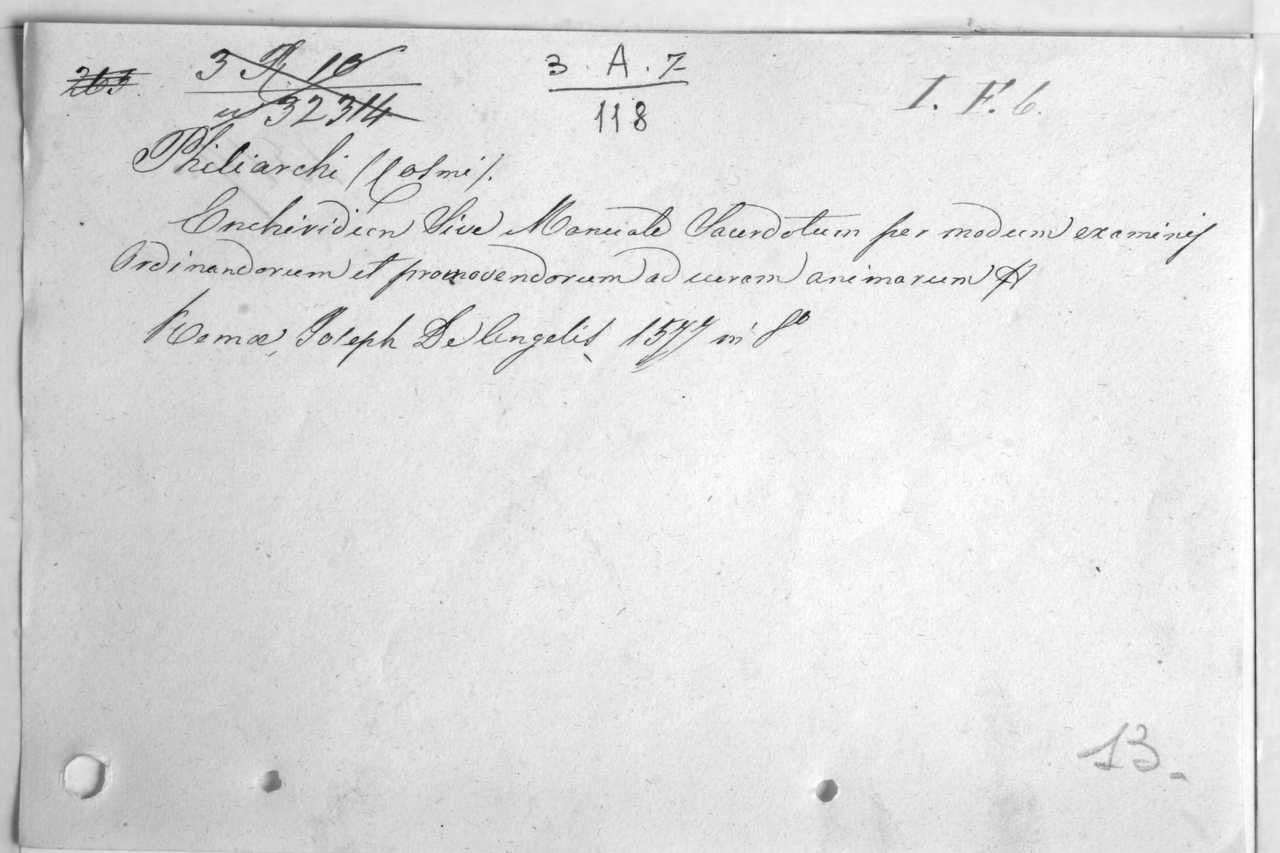 263. 3 R. 10 3 . A . 7 I. F. 6.
nº 32314 118
Philiarchi (Cosmi).
Enchiridion Sive Manuale Sacerdotum per modum examinis
Ordinandorum et promovendorum ad curam animarum &
Romæ, Joseph De Angelis, 1577 in 8º
13.